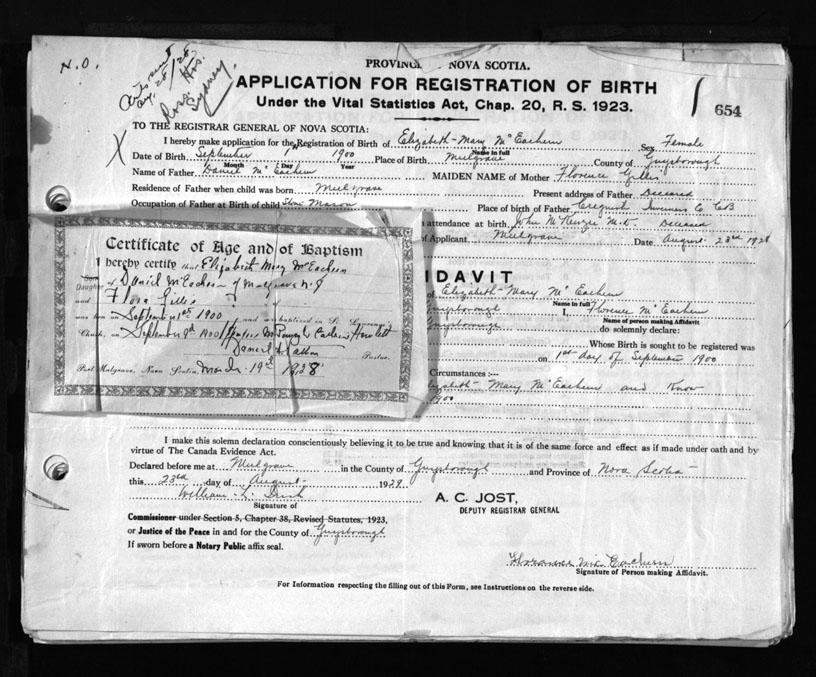 N.O.
Aug. 28/28
Ross Hos.
Sydney
PROVINCE NOVA SCOTIA.
APPLICATION FOR REGISTRATION OF BIRTH
Under the Vital Statistics Act, Chap. 20, R. S. 1923.
654
TO THE REGISTRAR GENERAL OF NOVA SCOTIA:
X
I hereby make application for the Registration of Birth of Elizabeth-Mary McEachern Sex Female
Name in full
Date of Birth September 1st 1900 Place of Birth Mulgrave County of Guysborough
Month Day Year
Name of Father Daniel McEachern MAIDEN NAME of Mother Florence Gillis
Residence of Father when child was born Mulgrave Present address of Father Deceased
Occupation of Father at Birth of child Stone Mason Place of birth of Father Creignish Inverness Co CB
n attendance at birth John McKenzie M.D. Deceased
of Applicant Mulgrave Date August 23rd 1928
Certificate of Age and of Baptism
I hereby certify that Elizabeth Mary McEachern
Son
Daughter of Daniel McEachern of Mulgrave N.S
and Flora Gillis
was born September 1st 1900 and was baptised in St. Lawrence
Church, on September 9d 1900
Pastor.
Port Mulgrave, Nova Scotia, March 19th 1928
IDAVIT
of Elizabeth-Mary McEachern
Name in full
Guysborough I, Florence McEachern
Name of person making Affidavit
Guysborough do solemnly declare:
Whose Birth is sought to be registered was
on 1st day of September 1900
Circumstances :-
lizabeth-Mary McEachern and Know
1900
I make this solemn declaration conscientiously believing it to be true and knowing that it is of the same force and effect as if made under oath and by
virtue of The Canada Evidence Act.
Declared before me at Mulgrave in the County of Guysborough and Province of Nova Scotia
this 23rd day of August 1928
William L.
Signature of
A. C. JOST,
DEPUTY REGISTRAR GENERAL
Commissioner under Section 5, Chapter 38, Revised Statutes, 1923,
or Justice of the Peace in and for the County of Guysborough
If sworn before a Notary Public affix seal.
Florence McEachern
Signature of Person making Affidavit.
For Information respecting the filling out of this Form, see Instructions on the reverse side.